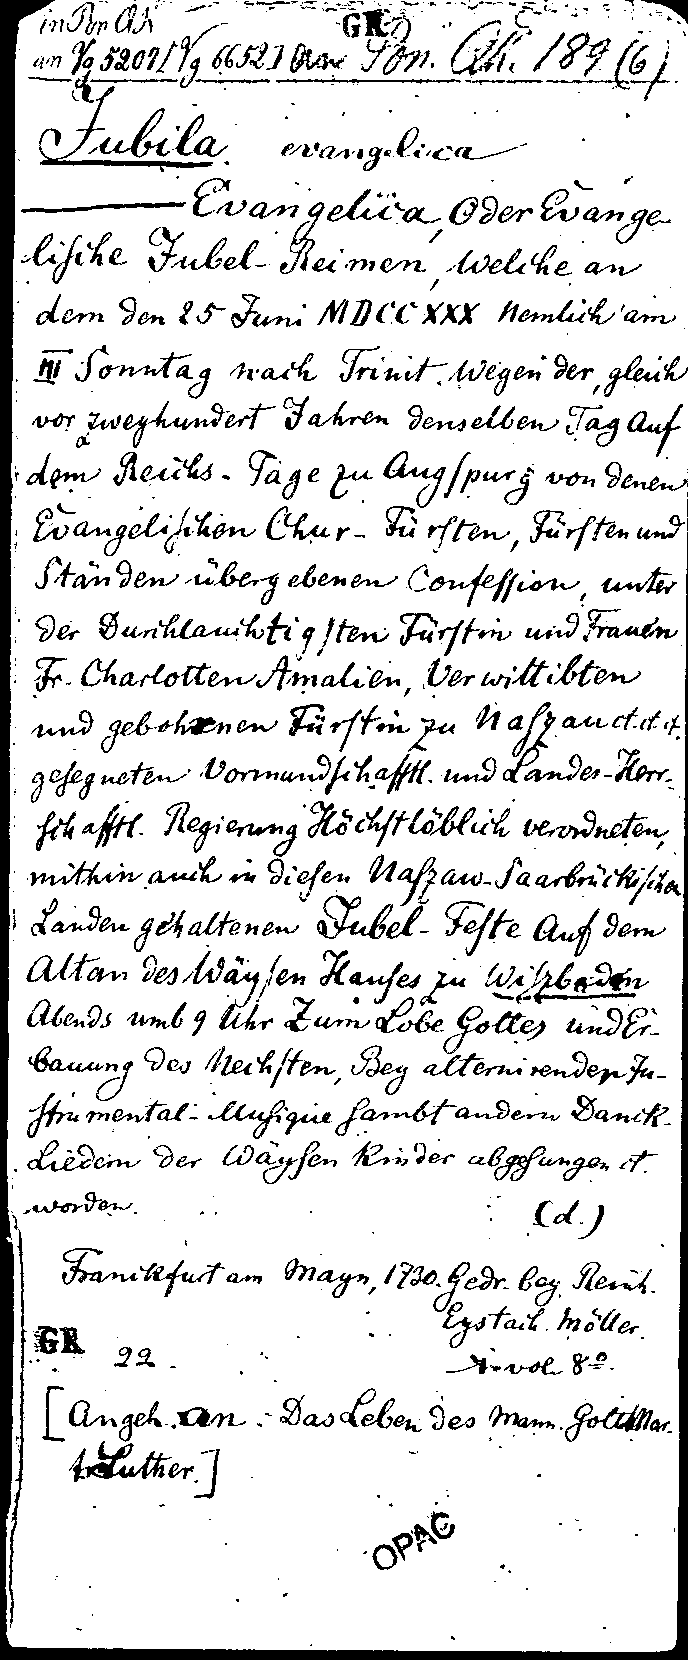 in Pon Qk
GR
an Vg 5207 / Vg 6652 Pon. Qk. 189 (6)
Jubila evangelica
Evangelica, Oder Evange-
lische Jubel-Reimen, Welche an
dem den 25 Juni MDCCXXX Nemlich am
III Sonntag nach Trinit. wegen der, gleich
vor zweyhundert Jahren denselben Tag Auf
dem Reichs-Tage zu Augspurg von denen
Evangelischen Chur-Fürsten, Fürsten und
Ständen übergebenen Confession, unter
der Durchlauchtigsten Fürstin und Frauen
Fr. Charlotten Amalien, Verwittibten
und gebohrnen Fürstin zu Naszau ct. ct. ct.
gesegneten Vormundschafftl. und Landes-Herr-
schafftl. Regierung Höchstlöblich verordneten,
mithin auch in diesen Naszaw-Saarbrückischen
Landen gehaltenen Jubel-Feste Auf dem
Altan des Wäysen Hauses zu Wiszbaden
Abends umb 9 Uhr Zum Lobe Gottes und Er-
bauung des Nechsten, Bey alternirender In-
strumental-Musique sambt andern Danck-
Liedern der Wäysen Kinder abgesungen ct.
worden. (d.)
Franckfurt am Mayn, 1730. Gedr. bey Reinh.
Eystach. Möller.
GR 22 vol. 8º.
[Angeh. an: Das Leben des Mann. Gott. Mar-
Luther.]
OPAC